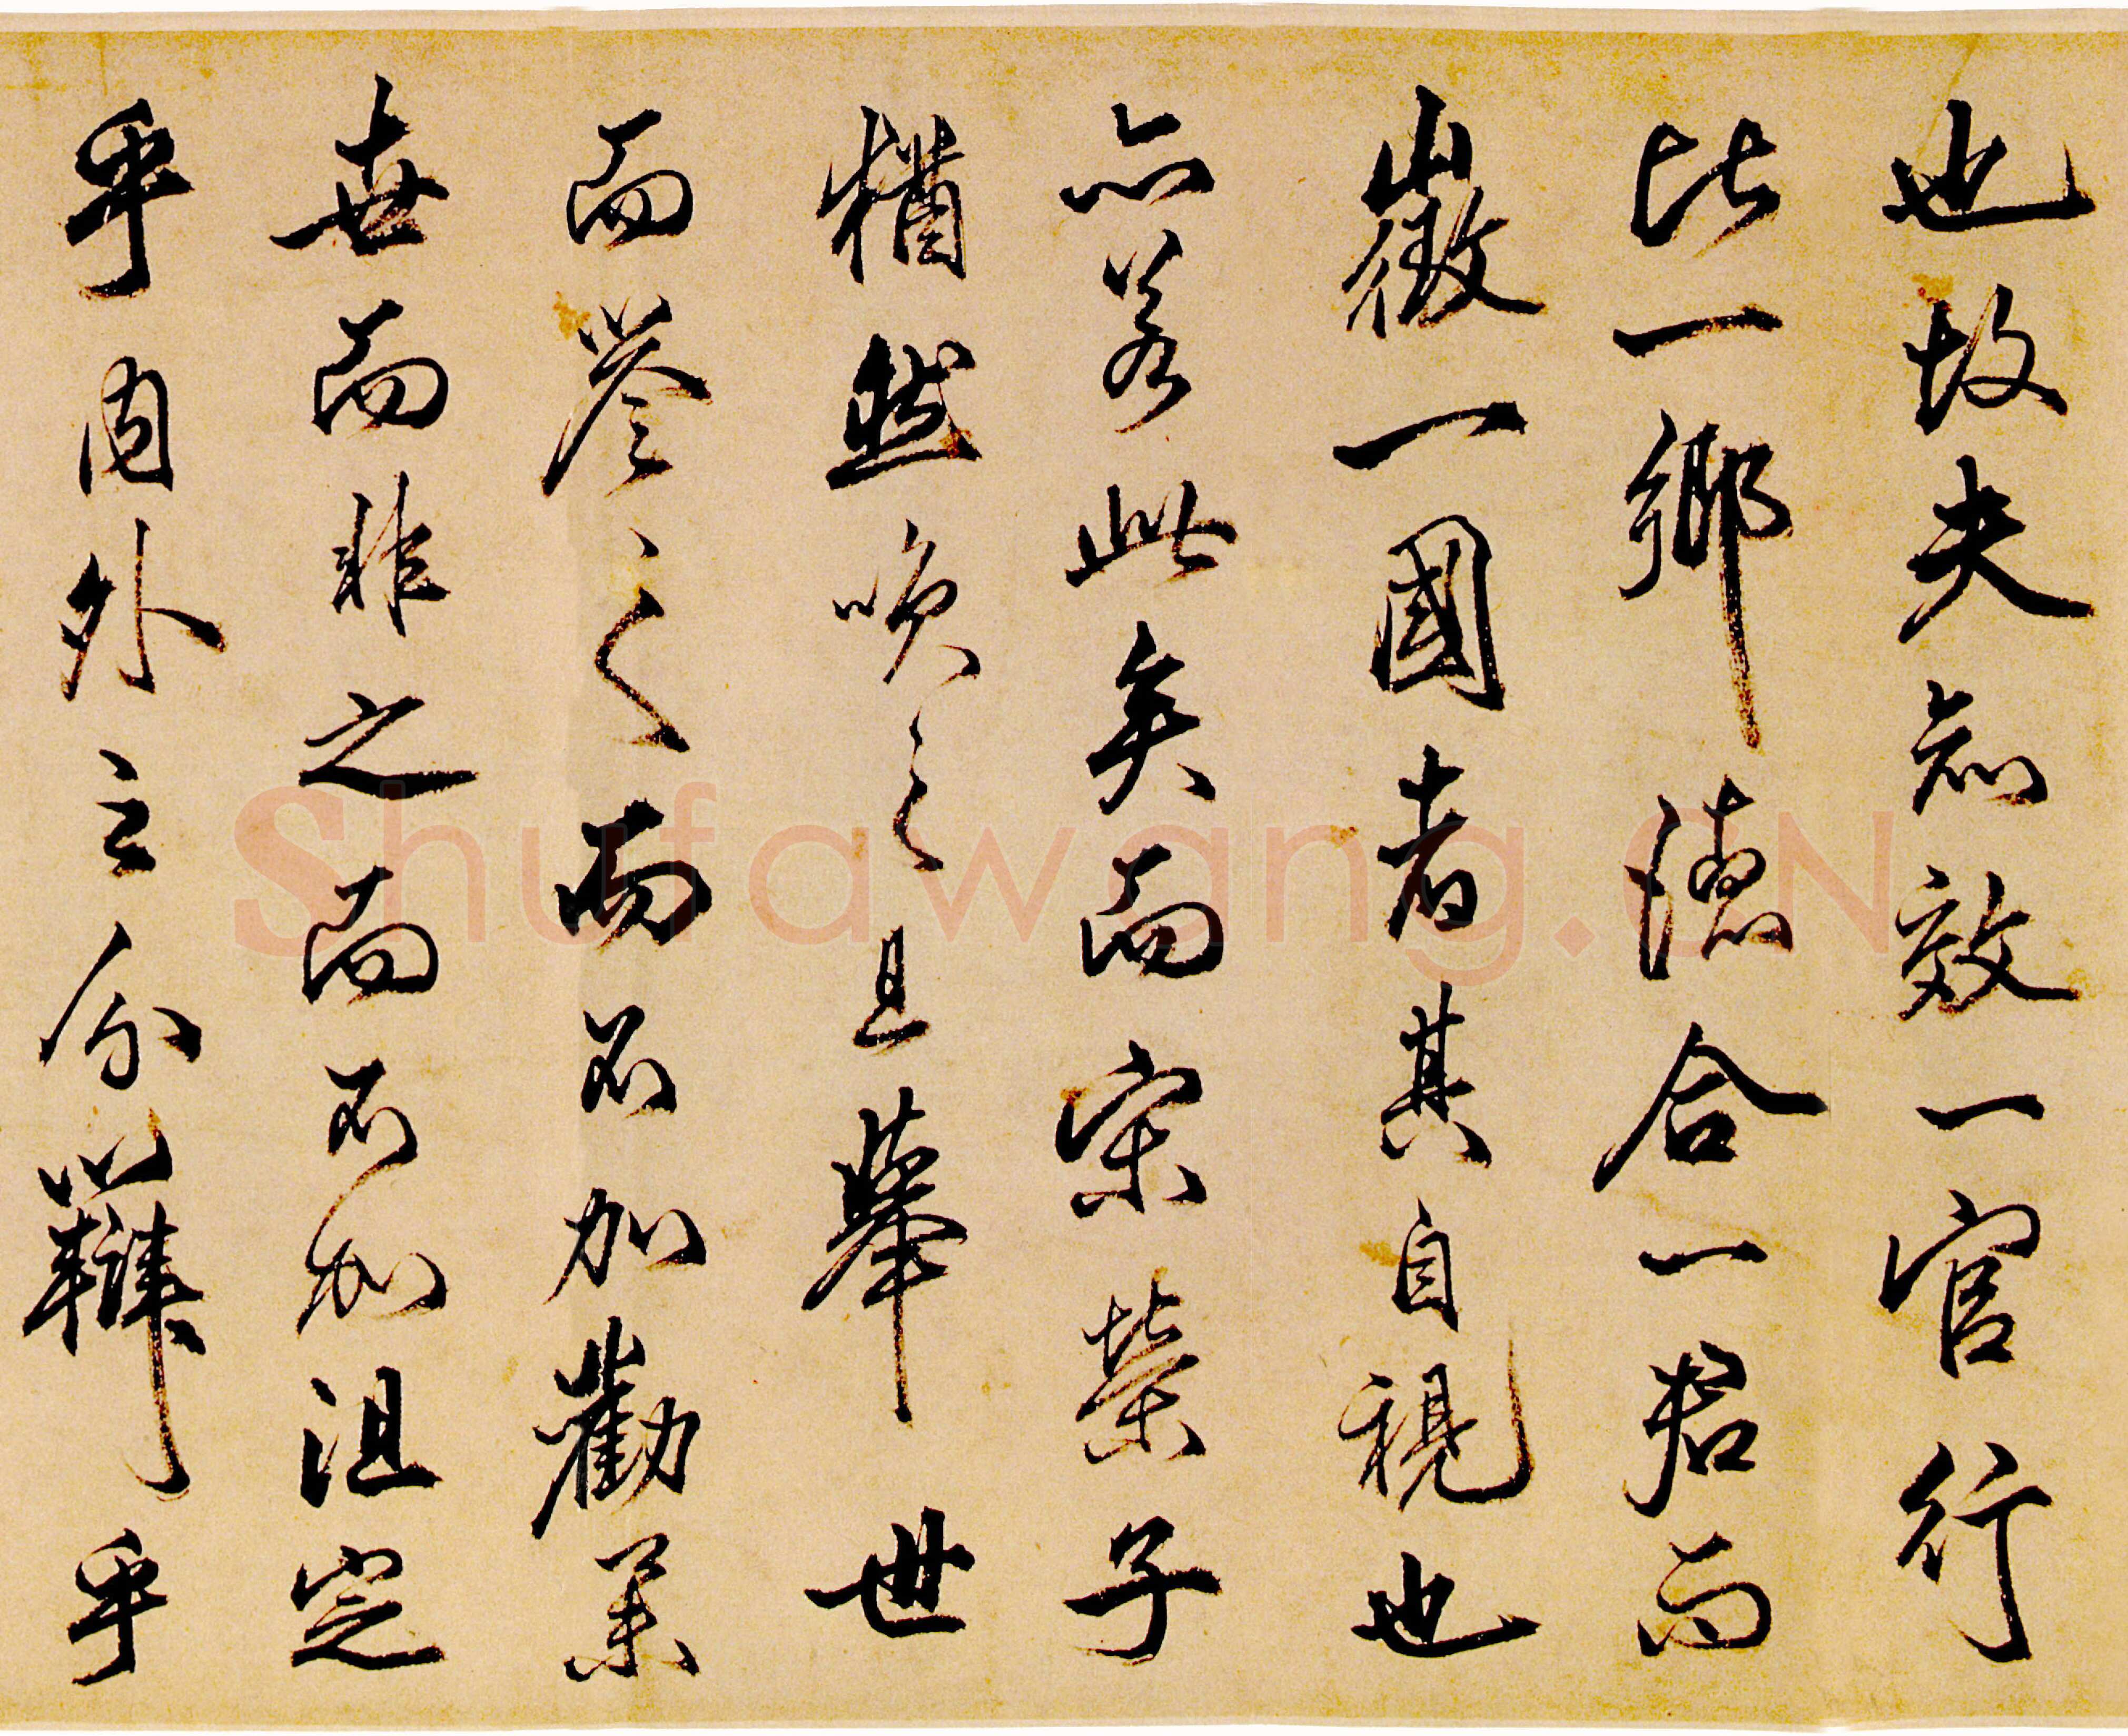 也故夫知效一官行
比一鄉德合一君而
徵一國者其自視也
亦若此矣而宋榮子
猶然咲之且舉世
而譽之而不加勸舉
世而非之而不加沮定
乎内外之分辯乎
Shufawang.CN